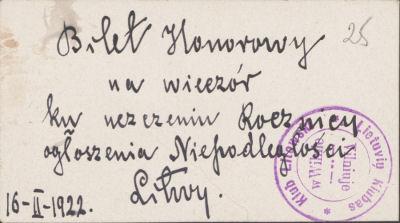 Bilet Honorowy
25
na wieczór
ku uczczeniu Rocznicy
ogłoszenia Niepodległości
Litwy.
16-II-1922.
Klub Litewski
w Wilnie
Lietuvių Klubas
Vilniuje